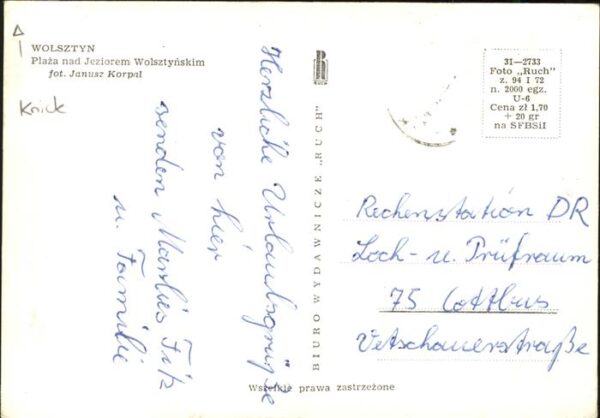 WOLSZTYN
Plaża nad Jeziorem Wolsztyńskim
fot. Janusz Korpal
Knick
Herzliche Urlaubsgrüße
von hier
senden Marlies Fitz
u. Familie
BIURO WYDAWNICZE „RUCH”
31—2733
Foto „Ruch”
z. 94 I 72
n. 2000 egz.
U-6
Cena zł 1,70
+ 20 gr
na SFBSiI
Rechenstation DR
Loch- u. Prüfraum
75 Cottbus
Vetschauerstraße
Wszelkie prawa zastrzeżone